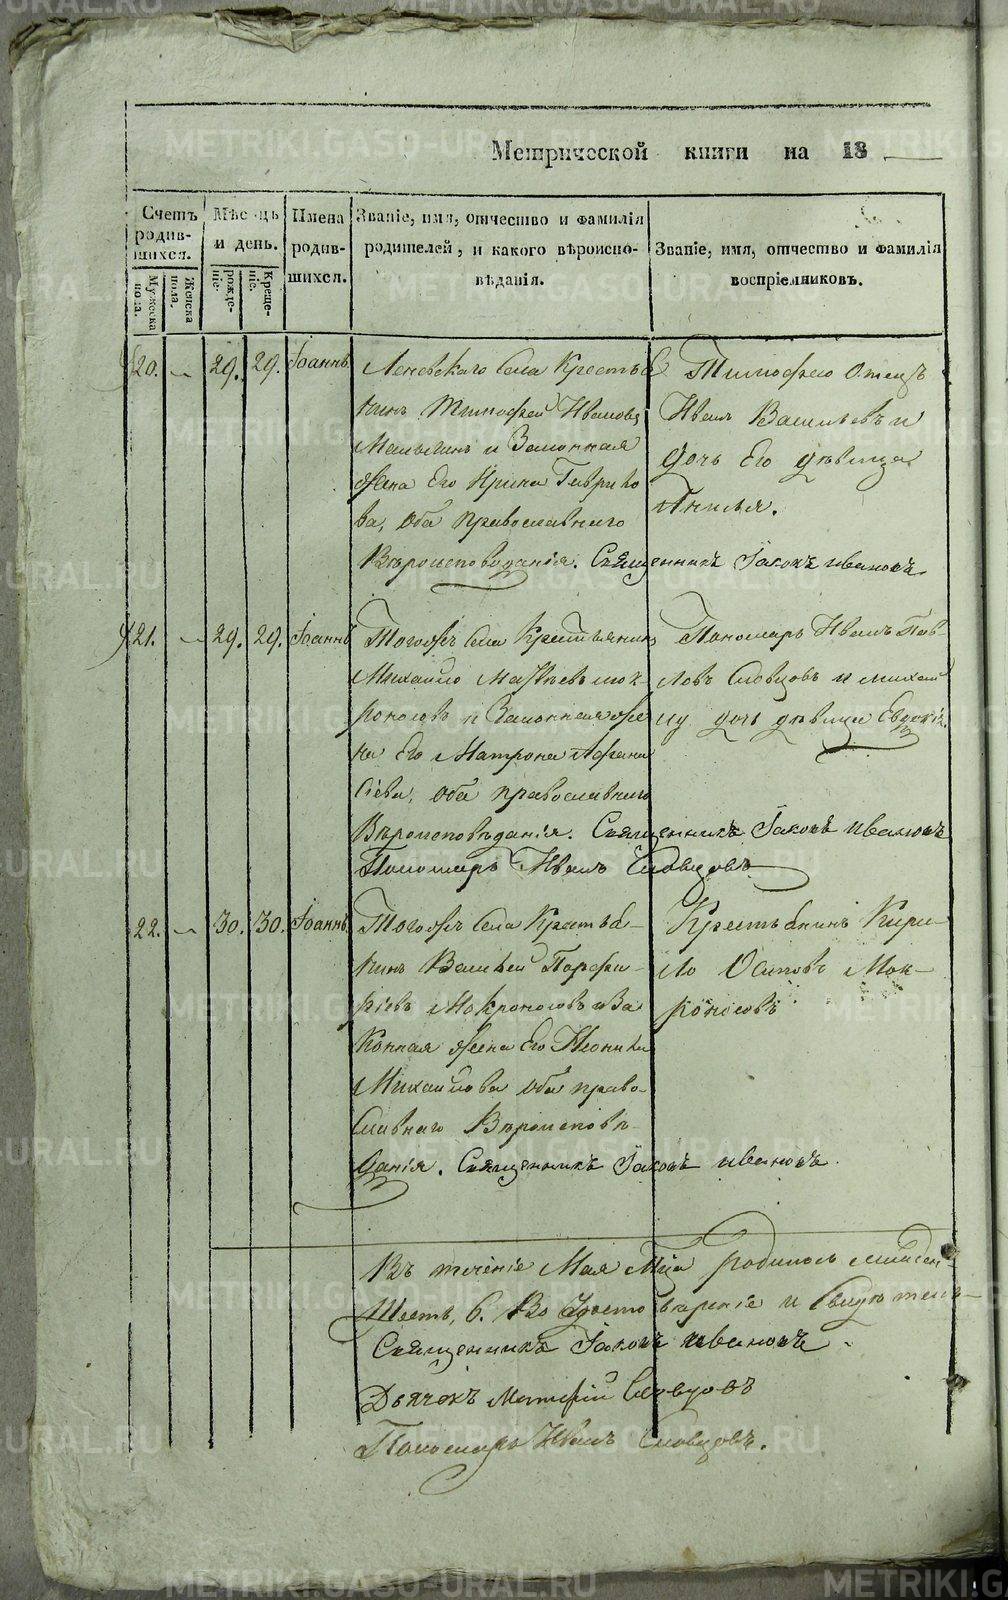 Метрической книги на 18
Счетъ родив-шихся.
Мѣсяцъ и день.
Имена родив-шихся.
Званіе, имя, отчество и фамилія родителей, и какого вѣроиспо-вѣданія.
Званіе, имя, отчество и фамилія воспріемниковъ.
Мужеска пола.
Женска пола.
рожде-ніе.
Креще-ніе.
20. 29. 29. Іоаннъ.
Леневскаго Села Крестья
нинъ Тимофей Ивановъ
Малыгинъ и Законная
Жена Его Ирина Гаврило
ва, Оба Православнаго
Вѣроисповѣданія. Священникъ Іаковъ Ивановъ
Тимофею Отецъ
Иванъ Васильевъ и
Дочь Его дѣвица
21. 29. 29. Іоаннъ
Тогожъ Села Крестьянинъ
Михайло Матвѣевъ Мок
роносовъ и Законная Же
на Его Матрона Афана
сіева, Оба православнаго
Вѣроисповѣданія. Священникъ Іаковъ Ивановъ
Пономарь Иванъ Словцовъ
Пономарь Иванъ Пав-
ловъ Словцовъ и Михай
дочь дѣвица
22. 30. 30. Іоаннъ.
Тогожъ Села Крестья-
нинъ Василей Порфи-
ріевъ Мокроносовъ и За
конная Жена Его
Михайлова Оба право-
славнаго Вѣроисповѣ-
данія. Священникъ Іаковъ Ивановъ.
Крестьянинъ Кири-
ло Осиповъ Мок-
роносовъ
Въ теченіе Мая М-ца родилось младен.
Шесть, 6. Во Удостовѣреніе и Свидѣтель-
Священникъ Іаковъ Ивановъ.
Дьячекъ Матфій Словцовъ
Пономарь Иванъ Словцовъ.
METRIKI.GASO-URAL.RU